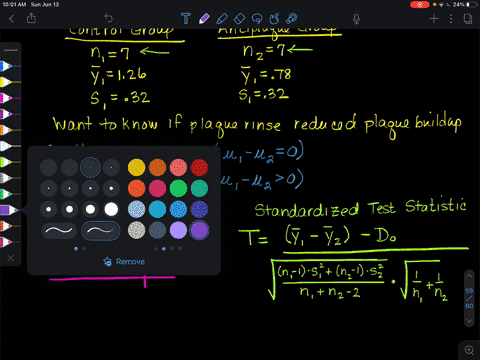 10:01 AM Sun Jun 13
24%
Control Group Antiplaque Group
n₁ = 7 ← n₂ = 7 ←
ȳ₁ = 1.26 ȳ₁ = .78
S₁ = .32 S₁ = .32
Want to know if plaque rinse reduced plaque buildup
μ₁ - μ₂ = 0)
μ₁ - μ₂ > 0)
Standardized Test Statistic
T = (ȳ₁ - ȳ₂) - D₀
(n₁-1)·S₁² + (n₂-1)·S₂²
n₁ + n₂ - 2
· √ 1/n₁ + 1/n₂
Remove
59
60